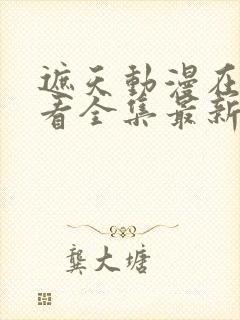 遮天動漫在
看全集最新
龔大塘